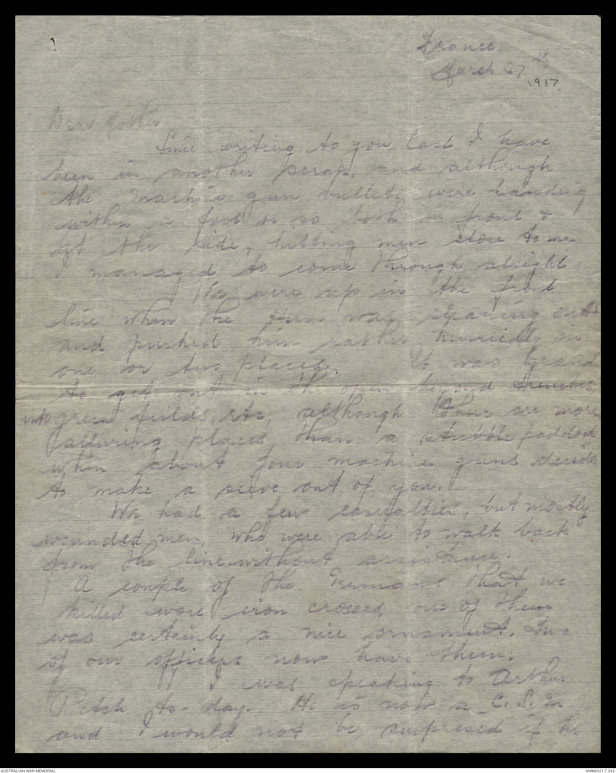 France
March 27th
1917
Dear Mother
Since writing to you last I have
been in another scrap, and although
the machine gun bullets were landing
within a foot or so both in front &
at the side, hitting men close to me
I managed to come through alright
We were up in the front
line when the Hun was clearing out
and pushed him rather hurriedly in
one or two places. It was grand
to get out in the open beyond trenches
into green fields, etc, although there are more
alluring places than a stubble paddock
when about four machine guns decide
to make a sieve out of you.
We had a few casualties, but mostly
wounded men, who were able to walk back
from the line without assistance.
A couple of the Germans that we
killed wore iron crosses one of them
was certainly a nice ornament. Two
of our officers now have them.
I was speaking to Arthur
to-day. He is now a C.S.M
and I would not be surprised if he
AUSTRALIAN WAR MEMORIAL